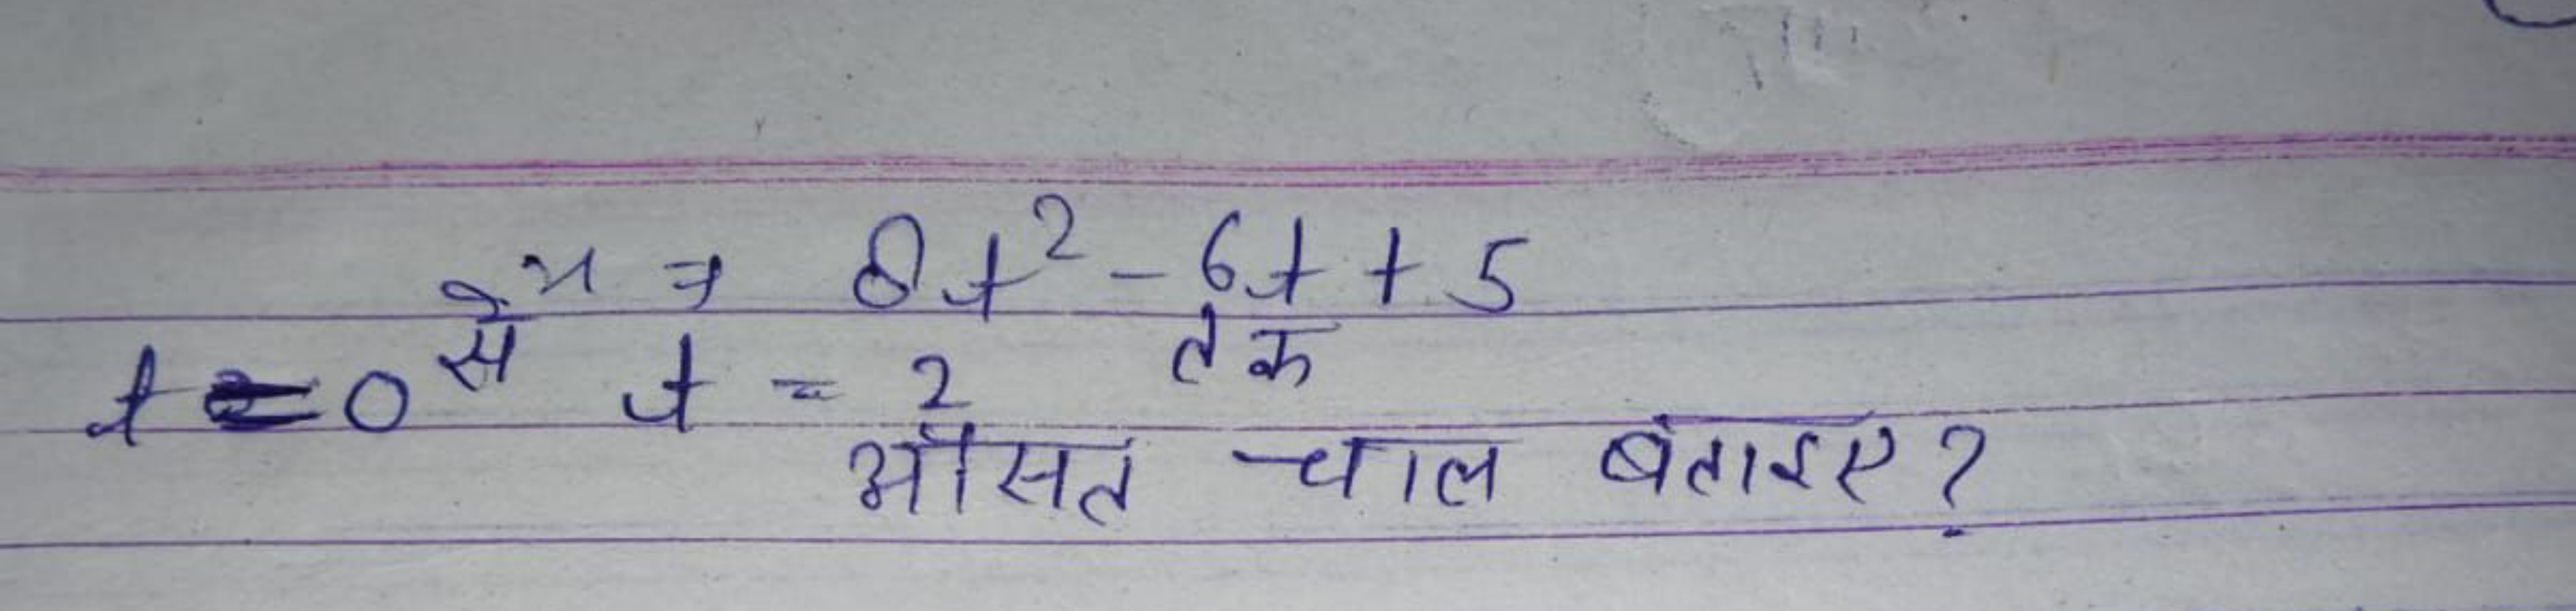 x = 8t² - 6t + 5
t = 0 से t = 2 तक
औसत चाल बताइए?